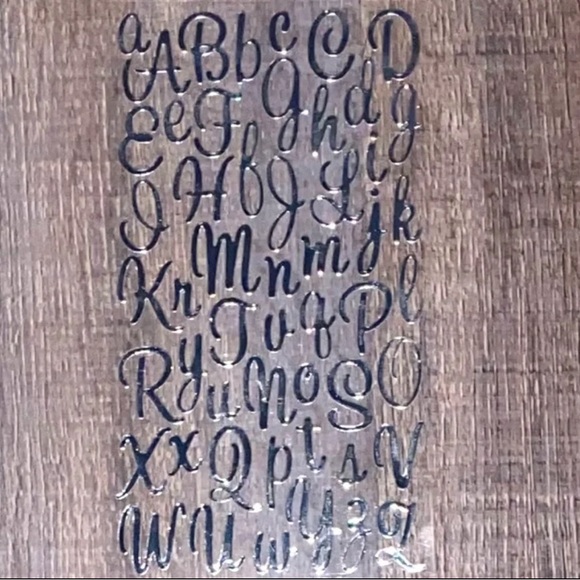 a A B b c C D
E e F G h d g
I H f J L i
K r M n m j k
y T v q P l
R u N o S O
X x Q p t s V
W U w y z